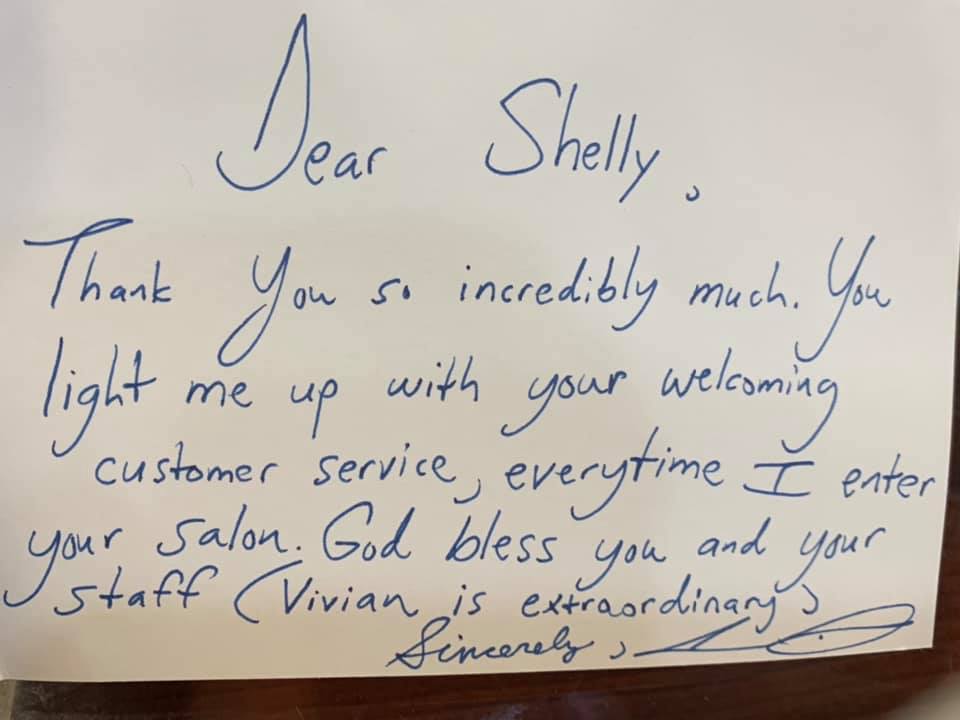 Dear Shelly,
Thank You so incredibly much. You
light me up with your welcoming
customer service, everytime I enter
your salon. God bless you and your
staff (Vivian is extraordinary)
Sincerely,